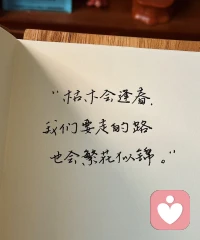 “枯木会逢春，
我们要走的路
也会繁花似锦。”